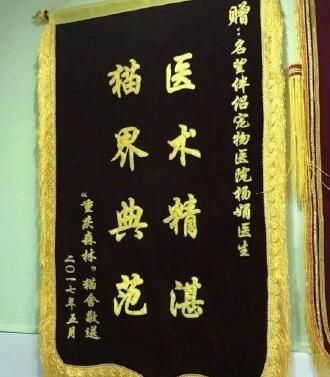 赠：名望伴侣宠物医院杨娟医生
医术精湛
猫界典范
“重庆森林”猫舍敬送
二〇一七年五月